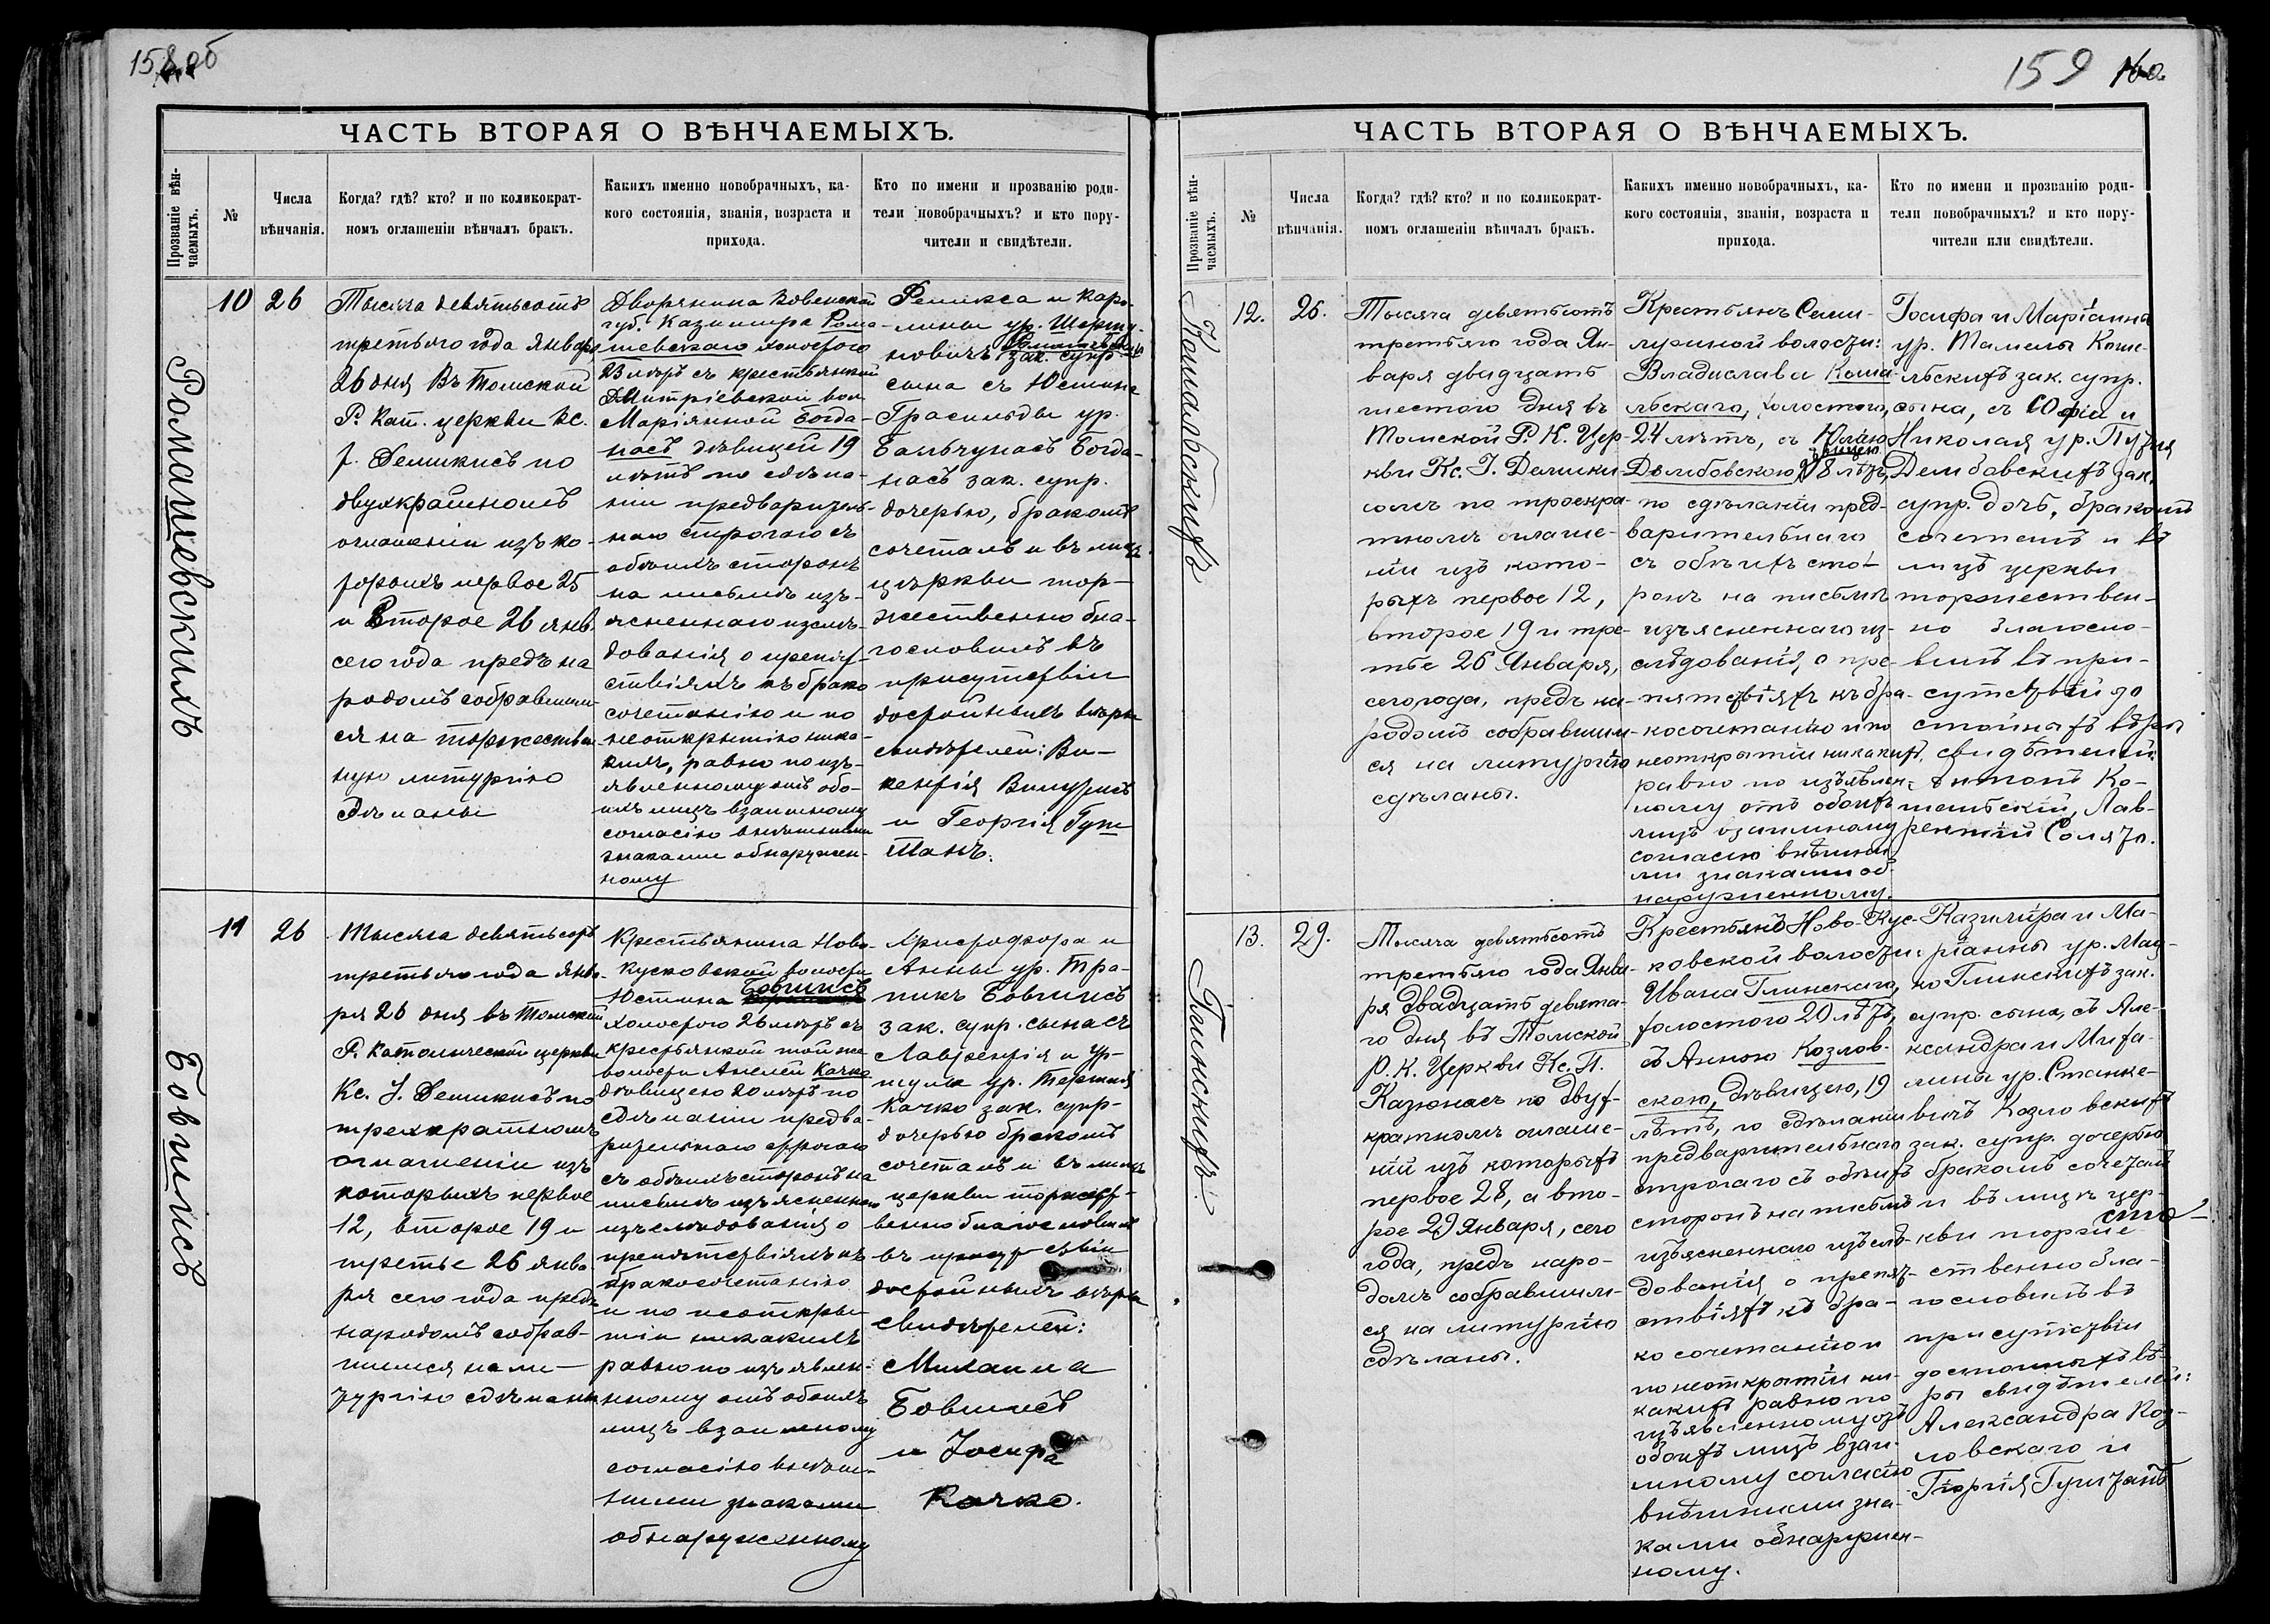 158 об
ЧАСТЬ ВТОРАЯ О ВѢНЧАЕМЫХЪ.
Прозваніе вѣн-
чаемыхъ.
№
Числа
вѣнчанія.
Когда? гдѣ? кто? и по коликократ-
номъ оглашеніи вѣнчалъ бракъ.
Какихъ именно новобрачныхъ, ка-
кого состоянія, званія, возраста и
прихода.
Кто по имени и прозванію роди-
тели новобрачныхъ? и кто пору-
чители и свидѣтели.
Ромашевскихъ
10
26
Тысяча девятьсотъ
третьяго года Января
26 дня въ Томской
Р. Кат. церкви Кс.
І. Демикисъ по
двухкратномъ
оглашеніи изъ ко-
торыхъ первое 25
и второе 26 янв.
сего года предъ на
родомъ собравшим
ся на торжествен
ную литургію
сдѣланы
Дворянина Ковенской
губ. Казимира Рома-
шевскаго холостого
23 лѣтъ съ крестьянкой
Дмитріевской вол.
Маріянной Богда-
насъ дѣвицей 19
лѣтъ по сдѣла-
ніи предваритель-
наго строгаго съ
обѣихъ сторонъ
на письмѣ изъ-
ясненнаго изслѣ-
дованія о препят-
ствіяхъ къ брако
сочетанію и по
неоткрытію ника-
кихъ, равно по изъ-
явленному отъ обо-
ихъ лицъ взаимному
согласію внѣшними
знаками обнаружен-
ному
Феликса и Каро-
лины ур.
новичъ Ромашевскихъ
зак. супр.
сына съ Юстина
Грасильды ур.
Бальчунасъ Богда-
насъ зак. супр.
дочерью, бракомъ
сочеталъ и въ лицѣ
церкви тор-
жественно бла-
гословилъ въ
присутствіи
достойныхъ вѣры
свидѣтелей: Ви-
кентія
и Георгія Гуш
танъ.
Бовшисъ
11
26
Тысяча девятьсотъ
третьяго года Янва-
ря 26 дня въ Томской
Р. Католической церкви
Кс. І. Демикисъ по
трехкратномъ
оглашеніи изъ
которыхъ первое
12, второе 19 и
третье 26 янва
ря сего года предъ
народомъ собрав-
шимся на ли-
тургію сдѣланы
Крестьянина Ново-
кусковской волости
Юстина Бовшисъ
холостого 26 лѣтъ съ
крестьянкой той же
волости Анелей Качко
дѣвицею 20 лѣтъ по
сдѣланіи предва-
рительнаго строгаго
съ обѣихъ сторонъ на
письмѣ изъясненнаго
изслѣдованія о
препятствіяхъ къ
бракосочетанію
и по неоткры-
тіи никакихъ
равно по изъявлен-
ному отъ обоихъ
лицъ взаимному
согласію внѣш-
ними знаками
обнаруженному
Христофора и
Анны ур. Тра-
пикъ Бовшисъ
зак. супр. сына съ
Лаврентія и Ур-
шули ур.
Качко зак. супр.
дочерью бракомъ
сочеталъ и въ лицѣ
церкви торжест-
венно благословилъ
въ присутствіи
достойныхъ вѣры
свидѣтелей:
Михаила
Бовшисъ
и Іосифа
Качко.
159 160.
ЧАСТЬ ВТОРАЯ О ВѢНЧАЕМЫХЪ.
Прозваніе вѣн-
чаемыхъ.
№
Числа
вѣнчанія.
Когда? гдѣ? кто? и по коликократ-
номъ оглашеніи вѣнчалъ бракъ.
Какихъ именно новобрачныхъ, ка-
кого состоянія, званія, возраста и
прихода.
Кто по имени и прозванію роди-
тели новобрачныхъ? и кто пору-
чители или свидѣтели.
12.
26.
Тысяча девятьсотъ
третьяго года Ян-
варя двадцать
шестого дня въ
Томской Р. К. Цер-
кви Кс. І. Демики
сомъ по троекра-
тномъ оглаше-
ніи изъ кото-
рыхъ первое 12,
второе 19 и тре-
тье 26 Января,
сего года, предъ на-
родомъ собравшим-
ся на литургію
сдѣланы.
Крестьянъ Семи-
лужной волости:
Владислава Кома
льскаго, холостого,
24 лѣтъ, съ Юліею
дѣвицею
Домбовскою, 18 лѣтъ,
по сдѣланіи пред-
варительнаго
съ обѣихъ сто-
ронъ на письмѣ
изъясненнаго из-
слѣдованія, о пре-
пятствіяхъ къ бра-
косочетанію и по
неоткрытіи никакихъ,
равно по изъявлен-
ному отъ обоихъ
лицъ взаимному
согласію внѣшни-
ми знаками об-
наруженному.
Іосифа и Маріанны
ур.
льскихъ зак. супр.
сына, съ Софіи и
Николая ур.
Домбовскихъ зак.
супр. дочь, бракомъ
сочеталъ и въ
лицѣ церкви
торжествен-
но благосло-
вилъ въ при-
сутствіи до
стойныхъ вѣры
свидѣтелей:
Антонъ Ко-
мальскій, Лав-
рентій
Глинскихъ.
13.
29.
Тысяча девятьсотъ
третьяго года Янва-
ря двадцать девята-
го дня въ Томской
Р. К. Церкви Кс. П.
Казюнасъ по двух-
кратномъ оглаше-
ніи изъ которыхъ
первое 28, а вто-
рое 29 Января, сего
года, предъ наро-
домъ собравшим-
ся на литургію
сдѣланы.
Крестьянъ Ново-Кус-
ковской волости:
Ивана Глинскаго,
холостого 20 лѣтъ,
съ Анною Козлов-
скою, дѣвицею, 19
лѣтъ, по сдѣланіи
предварительнаго
строгаго съ обѣихъ
сторонъ на письмѣ
изъясненнаго изслѣ-
дованія о препят-
ствіяхъ къ бра-
ко сочетанію и
по неоткрытіи ни-
какихъ равно по
изъявленному отъ
обоихъ лицъ взаи-
мному согласію
внѣшними зна-
ками обнаружен-
ному.
Казиміра и Ма-
ріанны ур.
Глинскихъ зак.
супр. сына, съ Але-
ксандра и Миха-
лины ур. Станке-
вичъ Козловскихъ
зак. супр. дочерью
бракомъ сочеталъ
и въ лицѣ цер-
кви торже-
ственно бла-
гословилъ въ
присутствіи
достойныхъ вѣ-
ры свидѣтелей:
Александра Коз-
ловскаго и